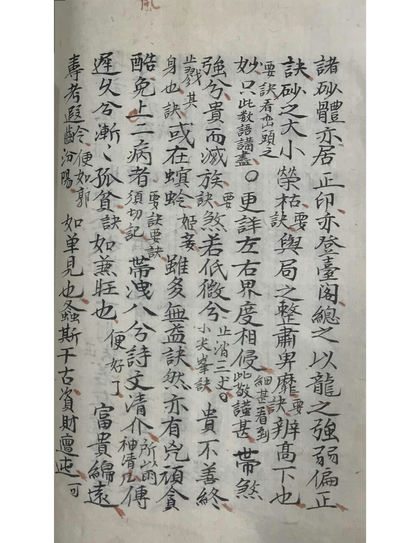 諸砂體亦居正印亦登臺閣總之以龍之強弱偏正
訣砂之大小榮枯要訣與局之整肅卑靡要訣辨高下也
要訣看巒頭之妙只此数語講盡。更詳左右界度相侵細甚看到帶煞
強兮貴而滅族要訣煞若低微兮止消三丈。小尖峯訣貴不善終
止戮其身也訣或在螟蛉姬妾雖多無益訣然亦有兇頑貪
酷免上二病者須切記要訣要訣帶洩八兮詩文清介所以神清傳
遲久兮漸漸孤貧訣如兼旺也便好了富貴綿遠
壽考遐齡便如郭汾陽如单見也螽斯千古資財可